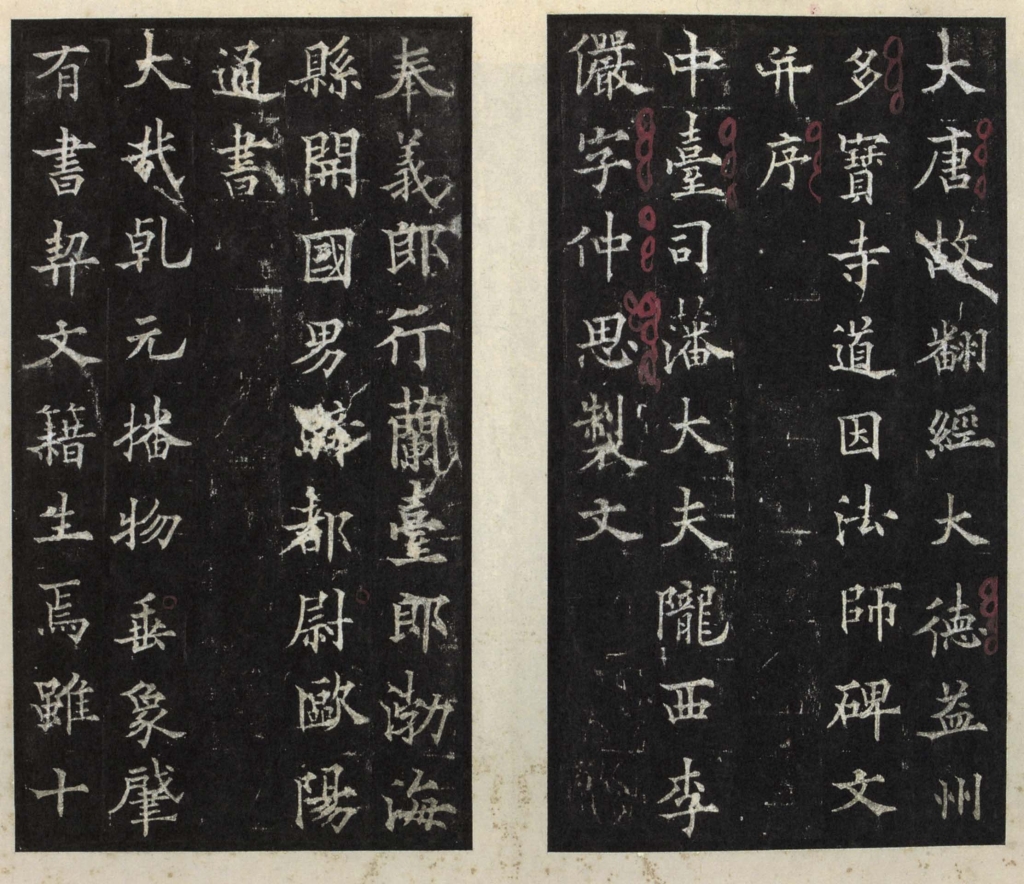 大唐故翻經大德益州
多寶寺道因法師碑文
并序
中臺司藩大夫隴西李
儼字仲思製文
奉義郎行蘭臺郎渤海
縣開國男騎都尉歐陽
通書
大哉乹元播物垂象肇
有書契文籍生焉雖十